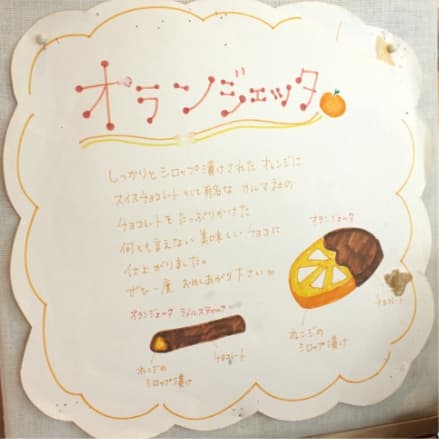 オランジェッタ
しっかりとシロップ漬けされたオレンジに
スイスチョコレートとして有名なカルマ社の
チョコレートをたっぷりかけた
何とも言えない美味しいチョコに
仕上がりました。
ぜひ一度お召しあがり下さい
オランジェッタ
チョコレート
オレンジの
シロップ漬け
オランジェッタ
チョコレート
オレンジの
シロップ漬け